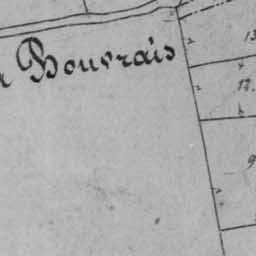 Bouvrais
13
12.
9